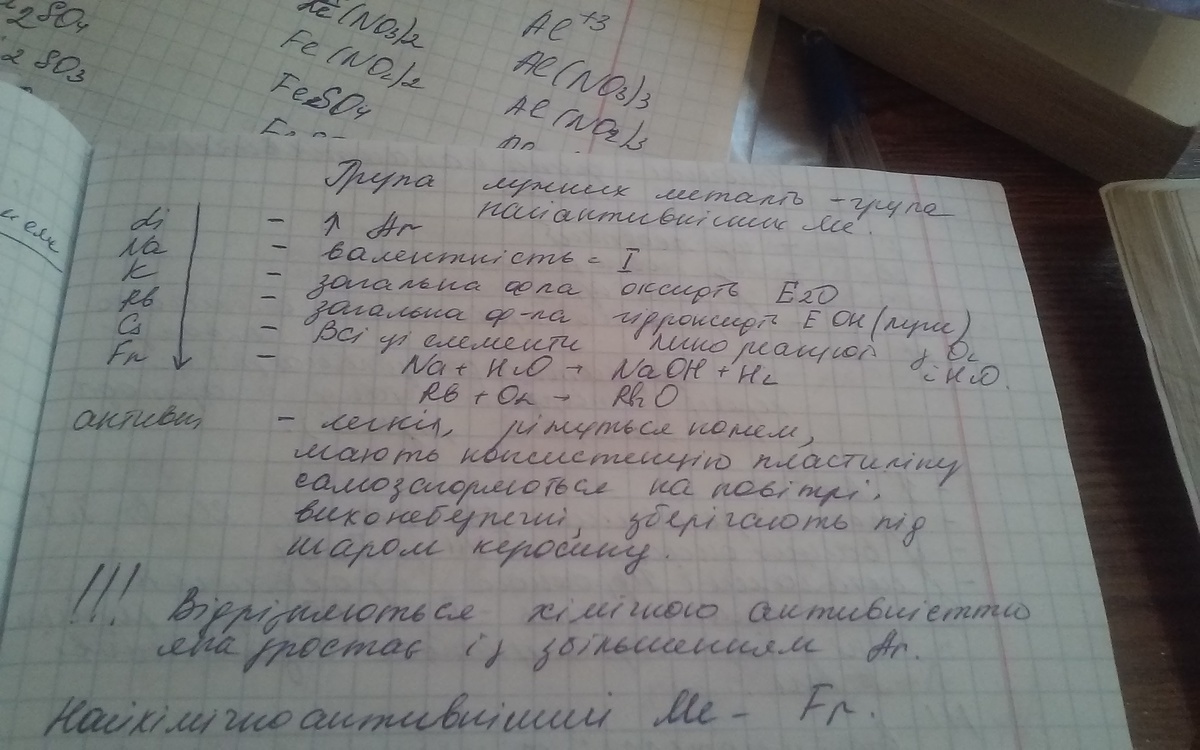 2SO4
2SO3
Fe(NO3)2
Fe(NO2)2
FeSO4
Al+3
Al(NO3)3
Al(NO2)3
Група лужних металів - група
найактивніших Ме.
Li - ↑ Ar
Na - валентність = I
K - загальна ф-ла оксидів E2O
Rb - загальна ф-ла гідроксидів EOH (луги)
Cs - Всі ці елементи реакції з O2
Fr - і H2O.
Na + H2O → NaOH + H2
Rb + O2 → Rb2O
активн - легкі, ріжуться ножем,
мають консистенцію пластиліну
самозагоряються на повітрі.
зберігають під
шаром керосину.
!!! Відрізняються хімічною активністтю
яка зростає із збільшенням Ar.
Найхімічноактивніший Ме - Fr.